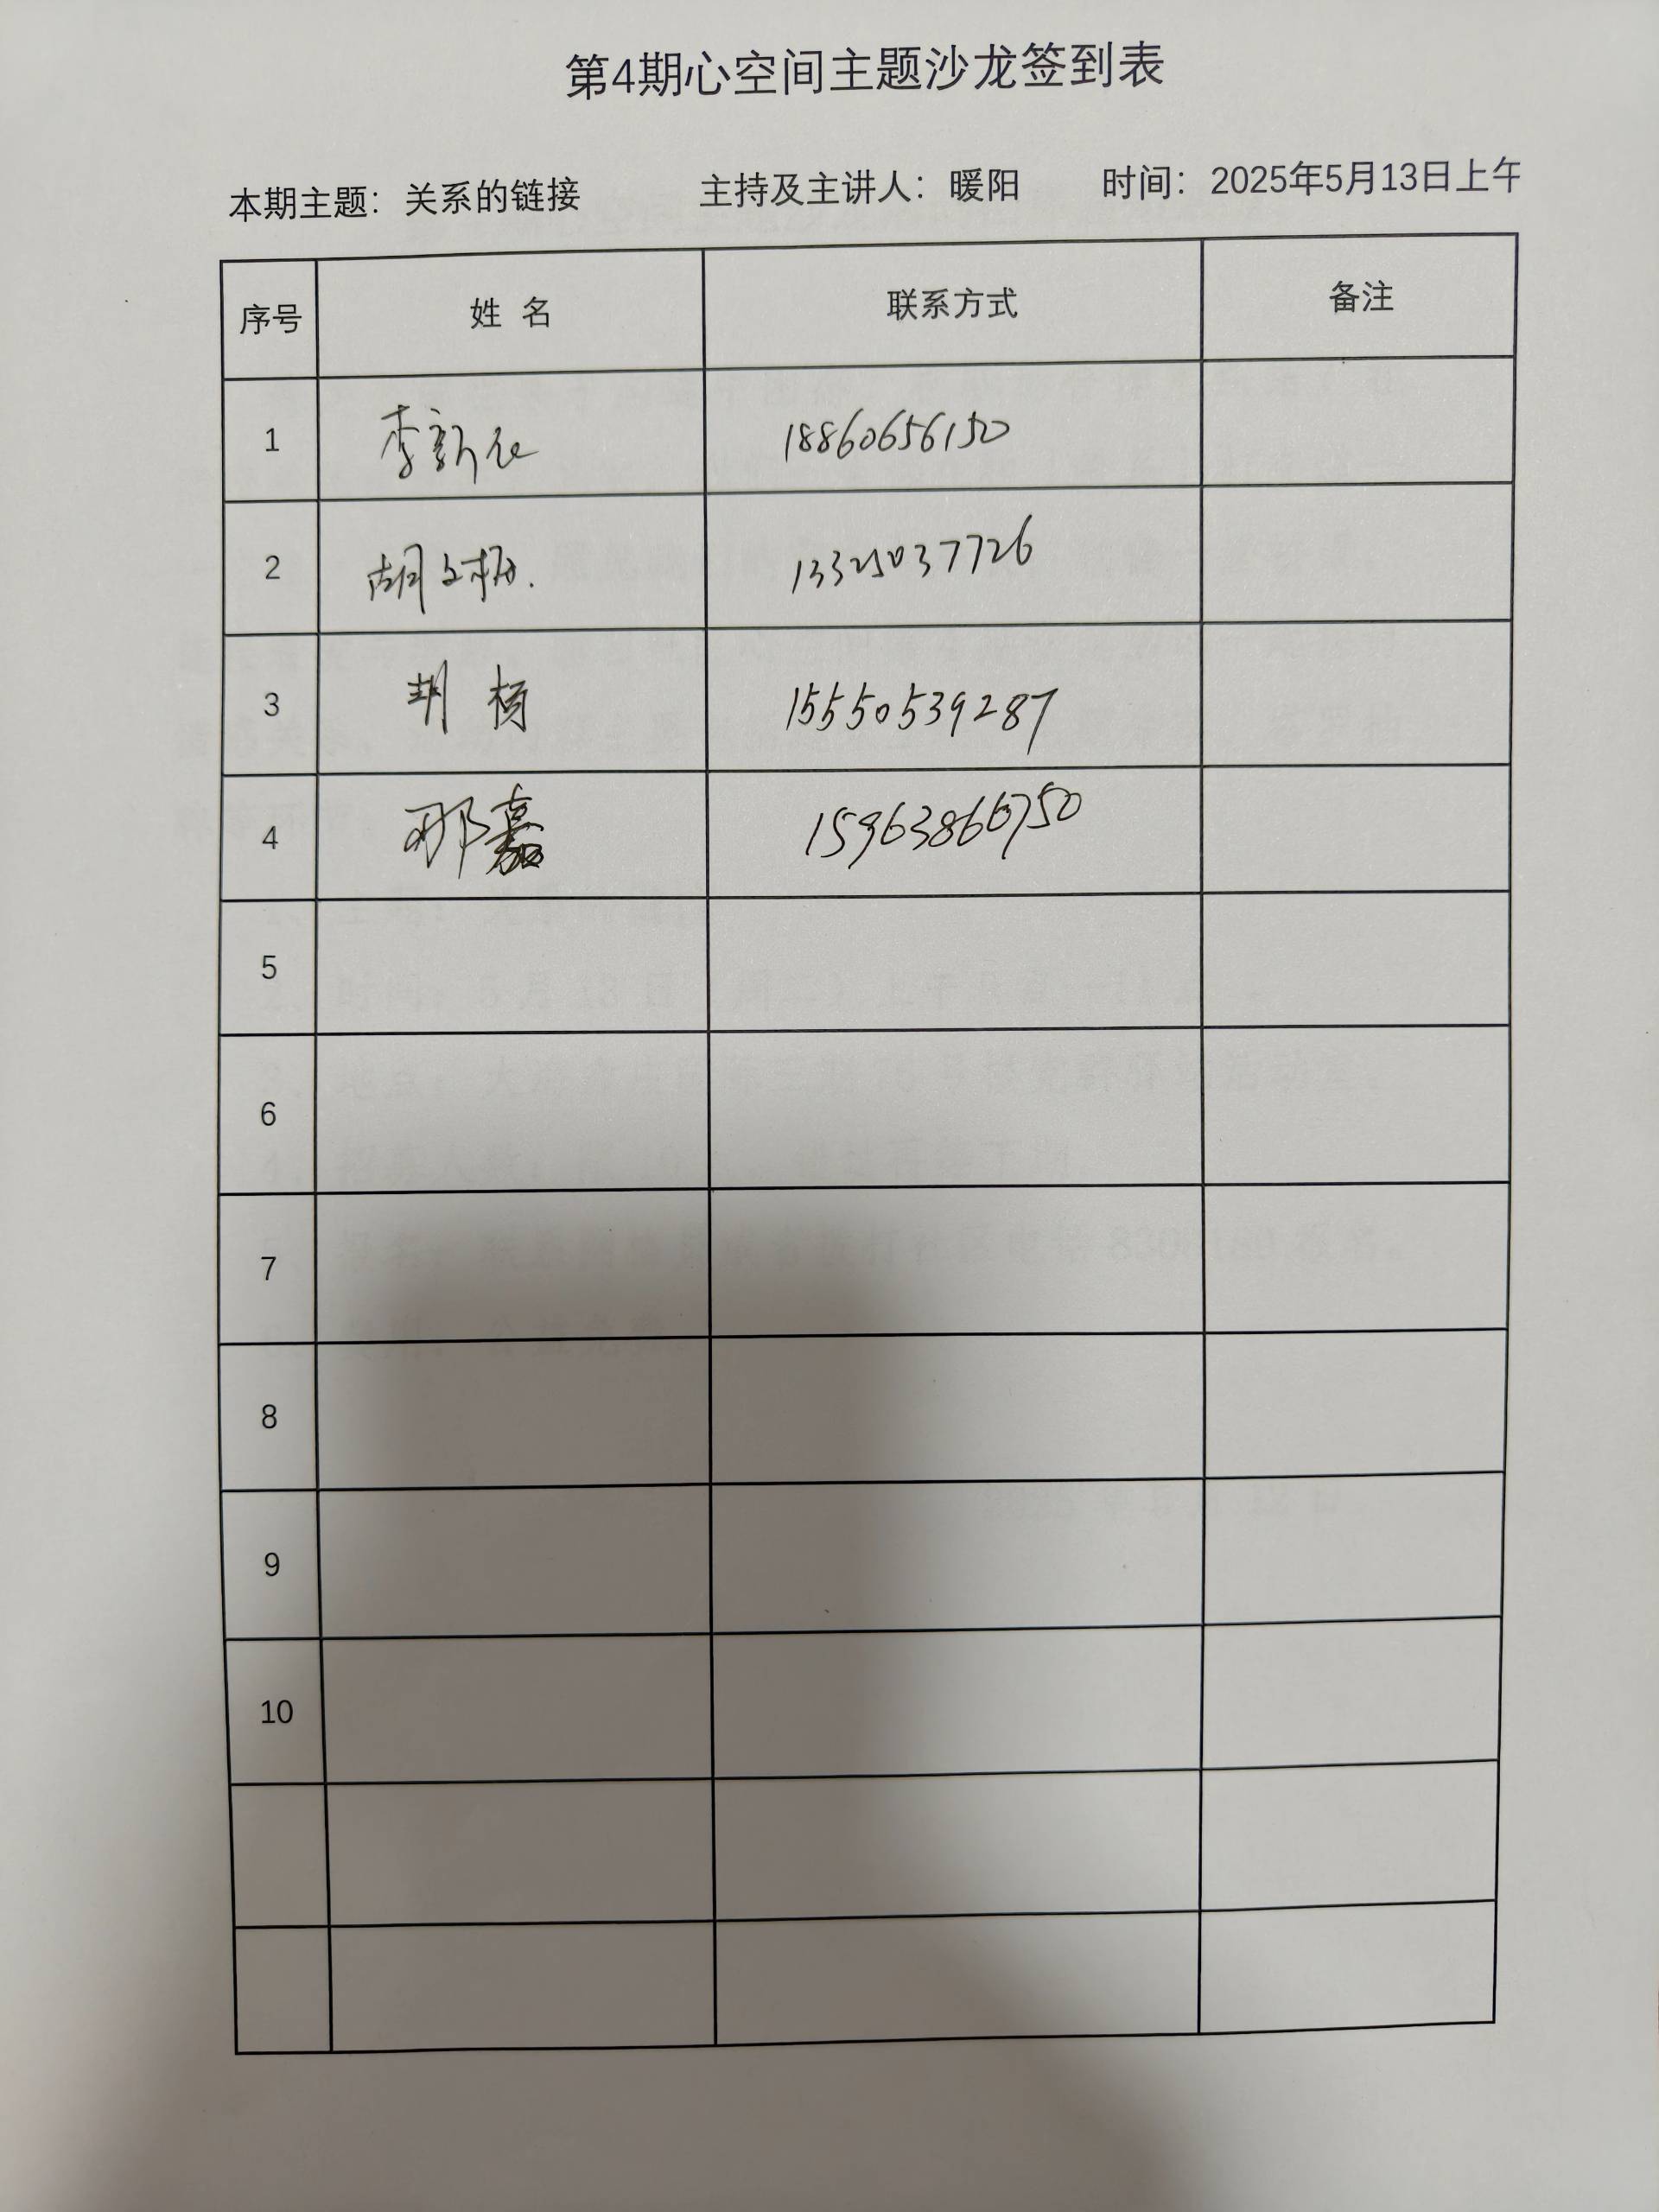 第4期心空间主题沙龙签到表
本期主题：关系的链接 主持及主讲人：暖阳 时间：2025年5月13日上午
序号 姓 名 联系方式 备注
1 李新 18860656150
2 胡文 13325037726
3 杨 15550539287
4 邢嘉 15963866750
5
6
7
8
9
10